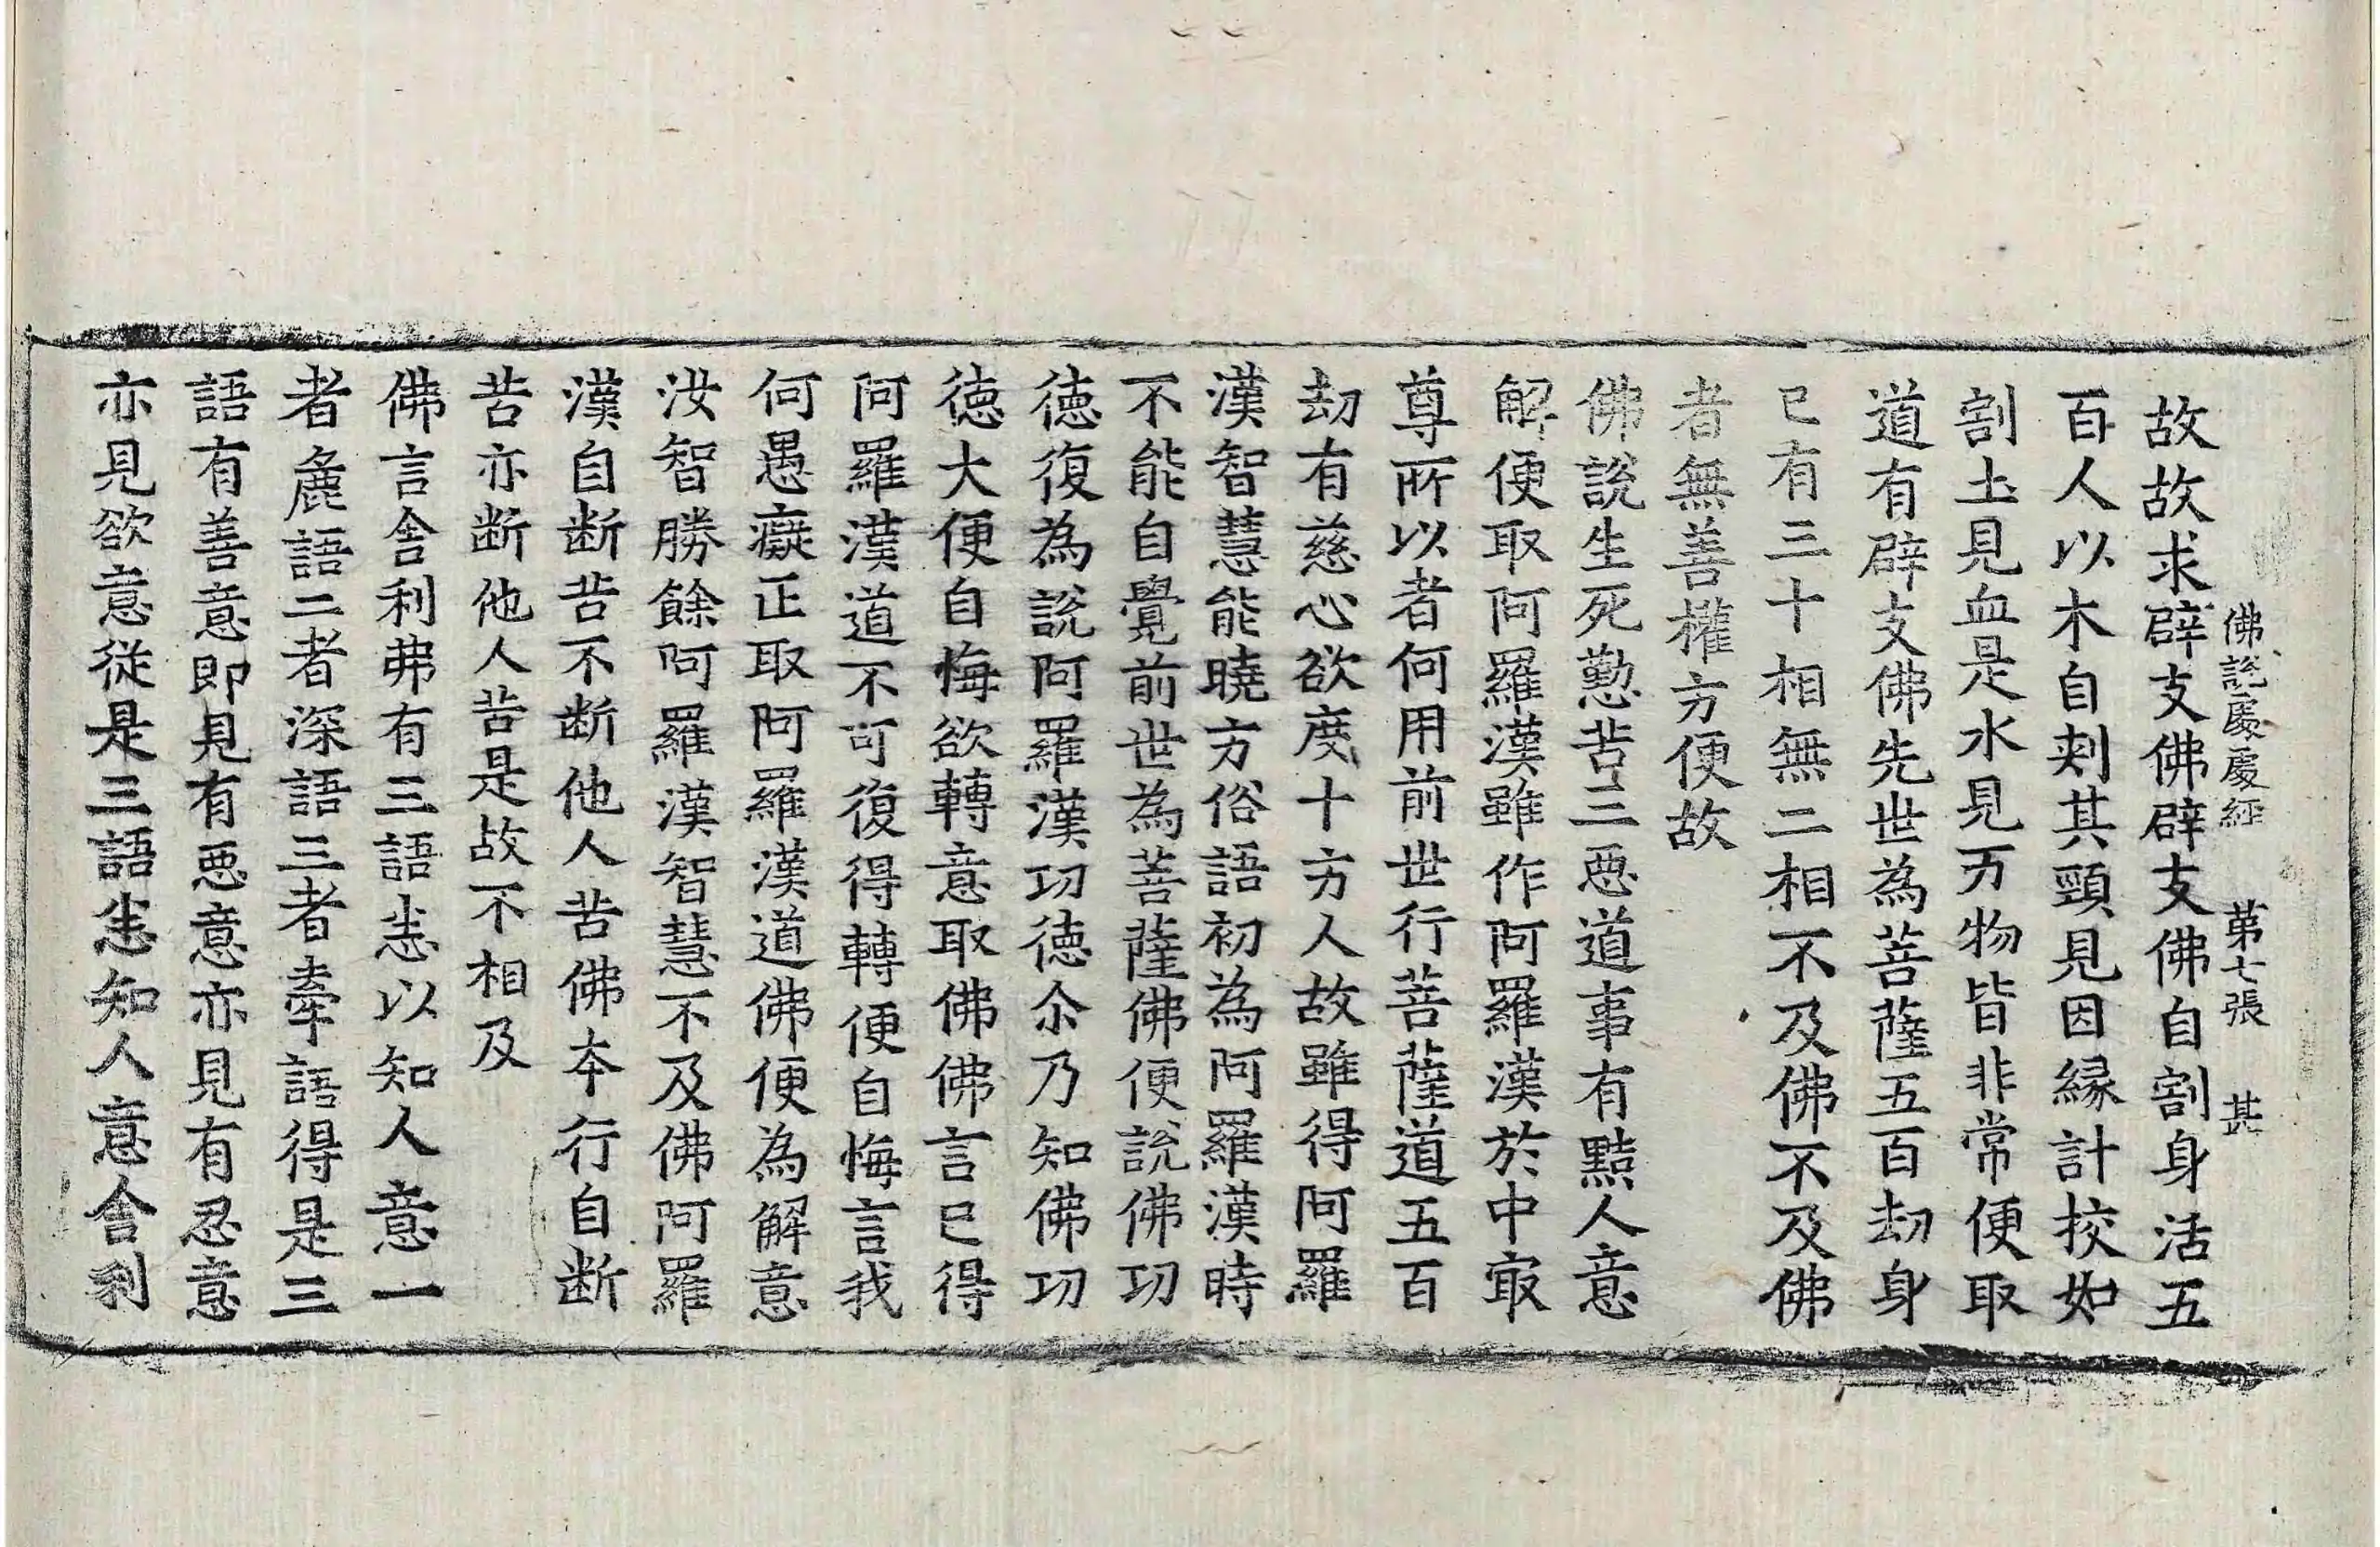 佛說處處經 第七張 甚
故故求辟支佛辟支佛自割身活五
百人以木自刾其頸見因縁計挍如
割土見血是水見万物皆非常便取
道有辟支佛先世為菩薩五百劫身
已有三十相無二相不及佛不及佛
者無善權方便故
佛說生死懃苦三惡道事有黠人意
解便取阿羅漢雖作阿羅漢於中㝡
尊所以者何用前世行菩薩道五百
劫有慈心欲度十方人故雖得阿羅
漢智慧能曉方俗語初為阿羅漢時
不能自覺前世為菩薩佛便說佛功
德復為說阿羅漢功德尒乃知佛功
德大便自悔欲轉意取佛佛言已得
阿羅漢道不可復得轉便自悔言我
何愚癡正取阿羅漢道佛便為解意
汝智勝餘阿羅漢智慧不及佛阿羅
漢自断苦不断他人苦佛夲行自断
苦亦断他人苦是故不相及
佛言舍利弗有三語恚以知人意一
者麁語二者深語三者牽語得是三
語有善意即見有惡意亦見有忍意
亦見欲意從是三語恚知人意舍利